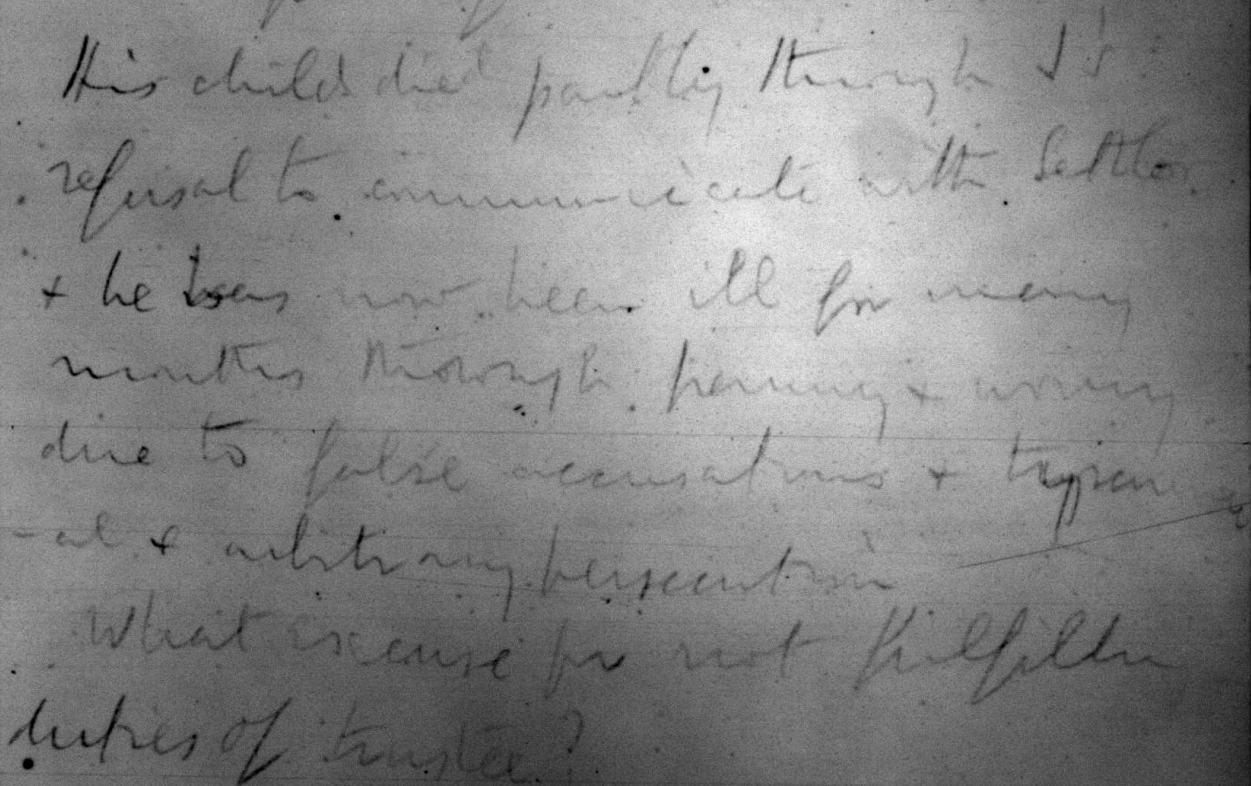 His child died partly through J's
refusal to communicate with Settlor
+ he has now been ill for many
months through penury + worry
due to false accusations +
-al + arbitrary persecution
What excuse for not fulfilling
duties of trustee?